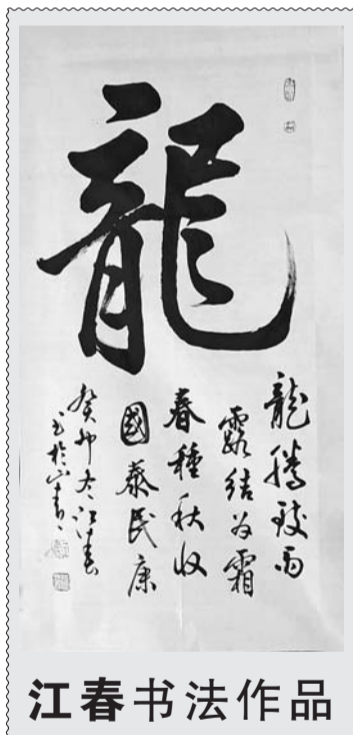 龍
龍騰致雨
露结为霜
春種秋收
國泰民康
癸卯冬江春
於
江春书法作品